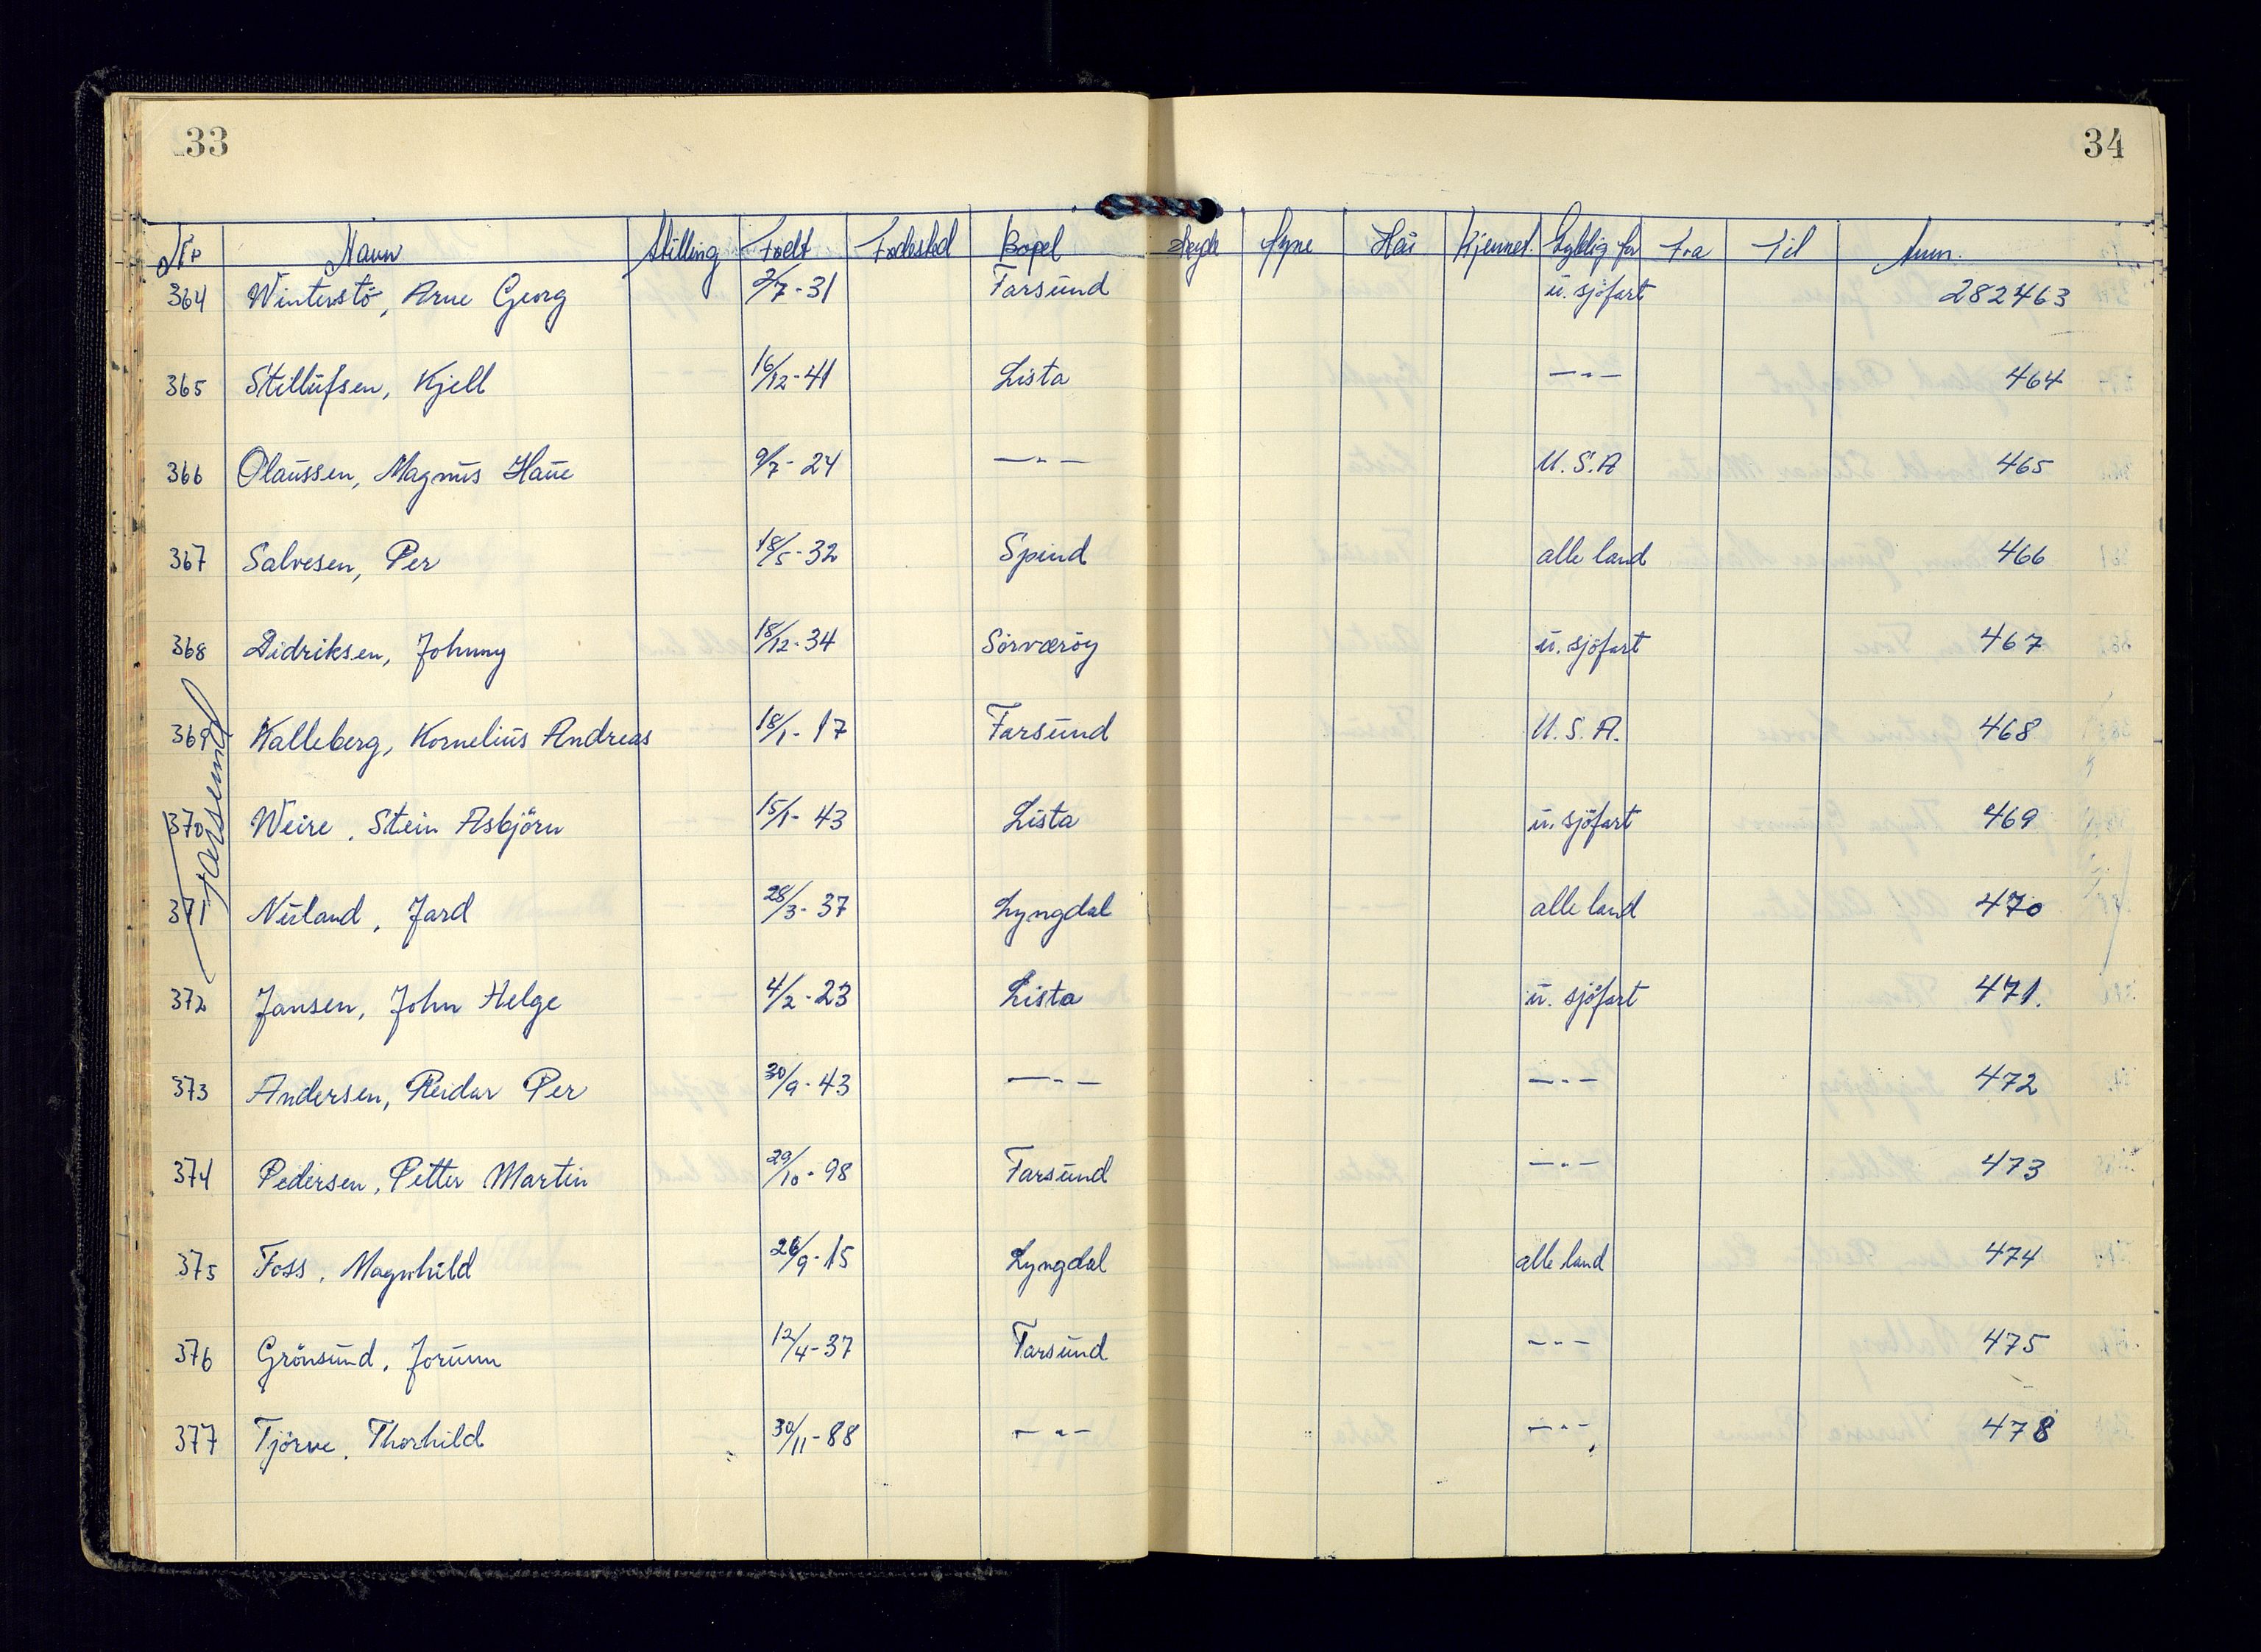 33
34
Nr Navn Stilling Født Fødested Bopel Høyde Øyne Hår Kjennet. Gyldig for Fra Til Anm.
364 Winterstö, Arne Georg 2/7-31 Farsund u. sjöfart 282463
365 Stillufsen, Kjell 16/12-41 Lista -"- 464
366 Olaussen, Magnus Haue 9/7-24 -"- U.S.A 465
367 Salvesen, Per 18/5-32 Spind alle land 466
368 Didriksen, Johnny 18/12-34 Sörværöy u. sjöfart 467
369 Kalleberg, Kornelius Andreas 18/1-17 Farsund U.S.A. 468
370 Weire, Stein Asbjörn 15/1-43 Lista u. sjöfart 469
371 Nuland, Jard 28/3-37 Lyngdal alle land 470
372 Jansen, John Helge 4/2-23 Lista u. sjöfart 471.
373 Andersen, Reidar Per 30/9-43 -"- -"- 472
374 Pedersen, Petter Martin 29/10-98 Farsund -"- 473
375 Foss, Magnhild 26/9-15 Lyngdal alle land 474
376 Grönsund, Jorunn 12/4-37 Farsund -"- 475
377 Tjörve, Thorhild 30/11-88 -"- -"- 478
Farsund